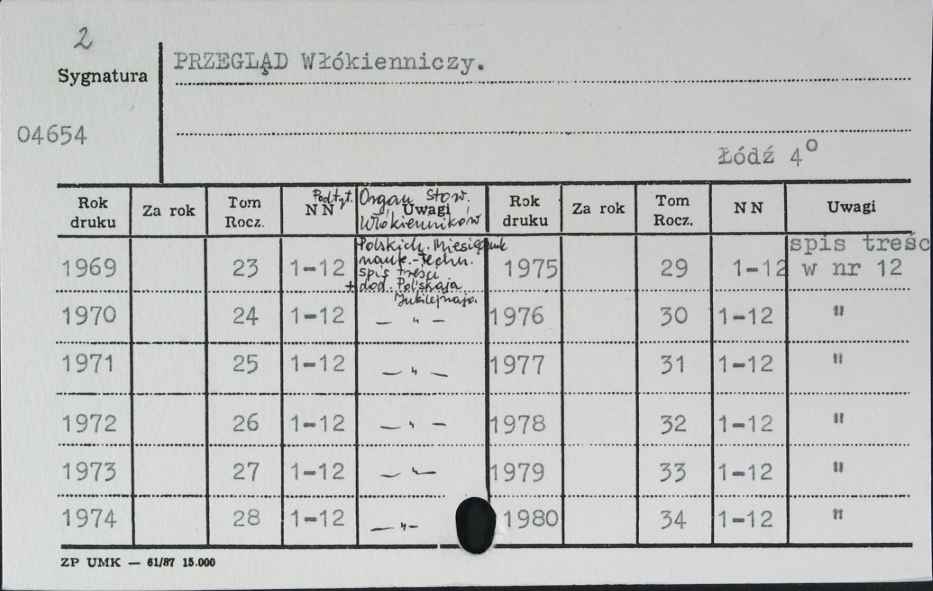 2
Sygnatura
PRZEGLĄD Włókienniczy.
04654
Łódź 4°
Rok druku Za rok Tom Rocz. Podtyt. N N Organ Stow. Uwagi Włókienników Rok druku Za rok Tom Rocz. N N Uwagi
1969 23 1-12 Polskich. Miesięcznik nauk.-techn. spis treści + dod. Polskaja Jubilejnaja. 1975 29 1-12 spis treśc w nr 12
1970 24 1-12 — " — 1976 30 1-12 "
1971 25 1-12 — " — 1977 31 1-12 "
1972 26 1-12 — " — 1978 32 1-12 "
1973 27 1-12 — " — 1979 33 1-12 "
1974 28 1-12 — " — 1980 34 1-12 "
ZP UMK — 61/87 15.000